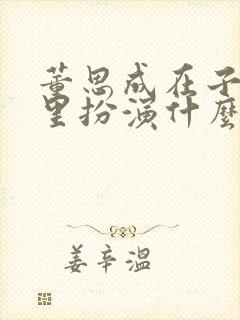 董思成在子
里扮演什麼
姜辛溫